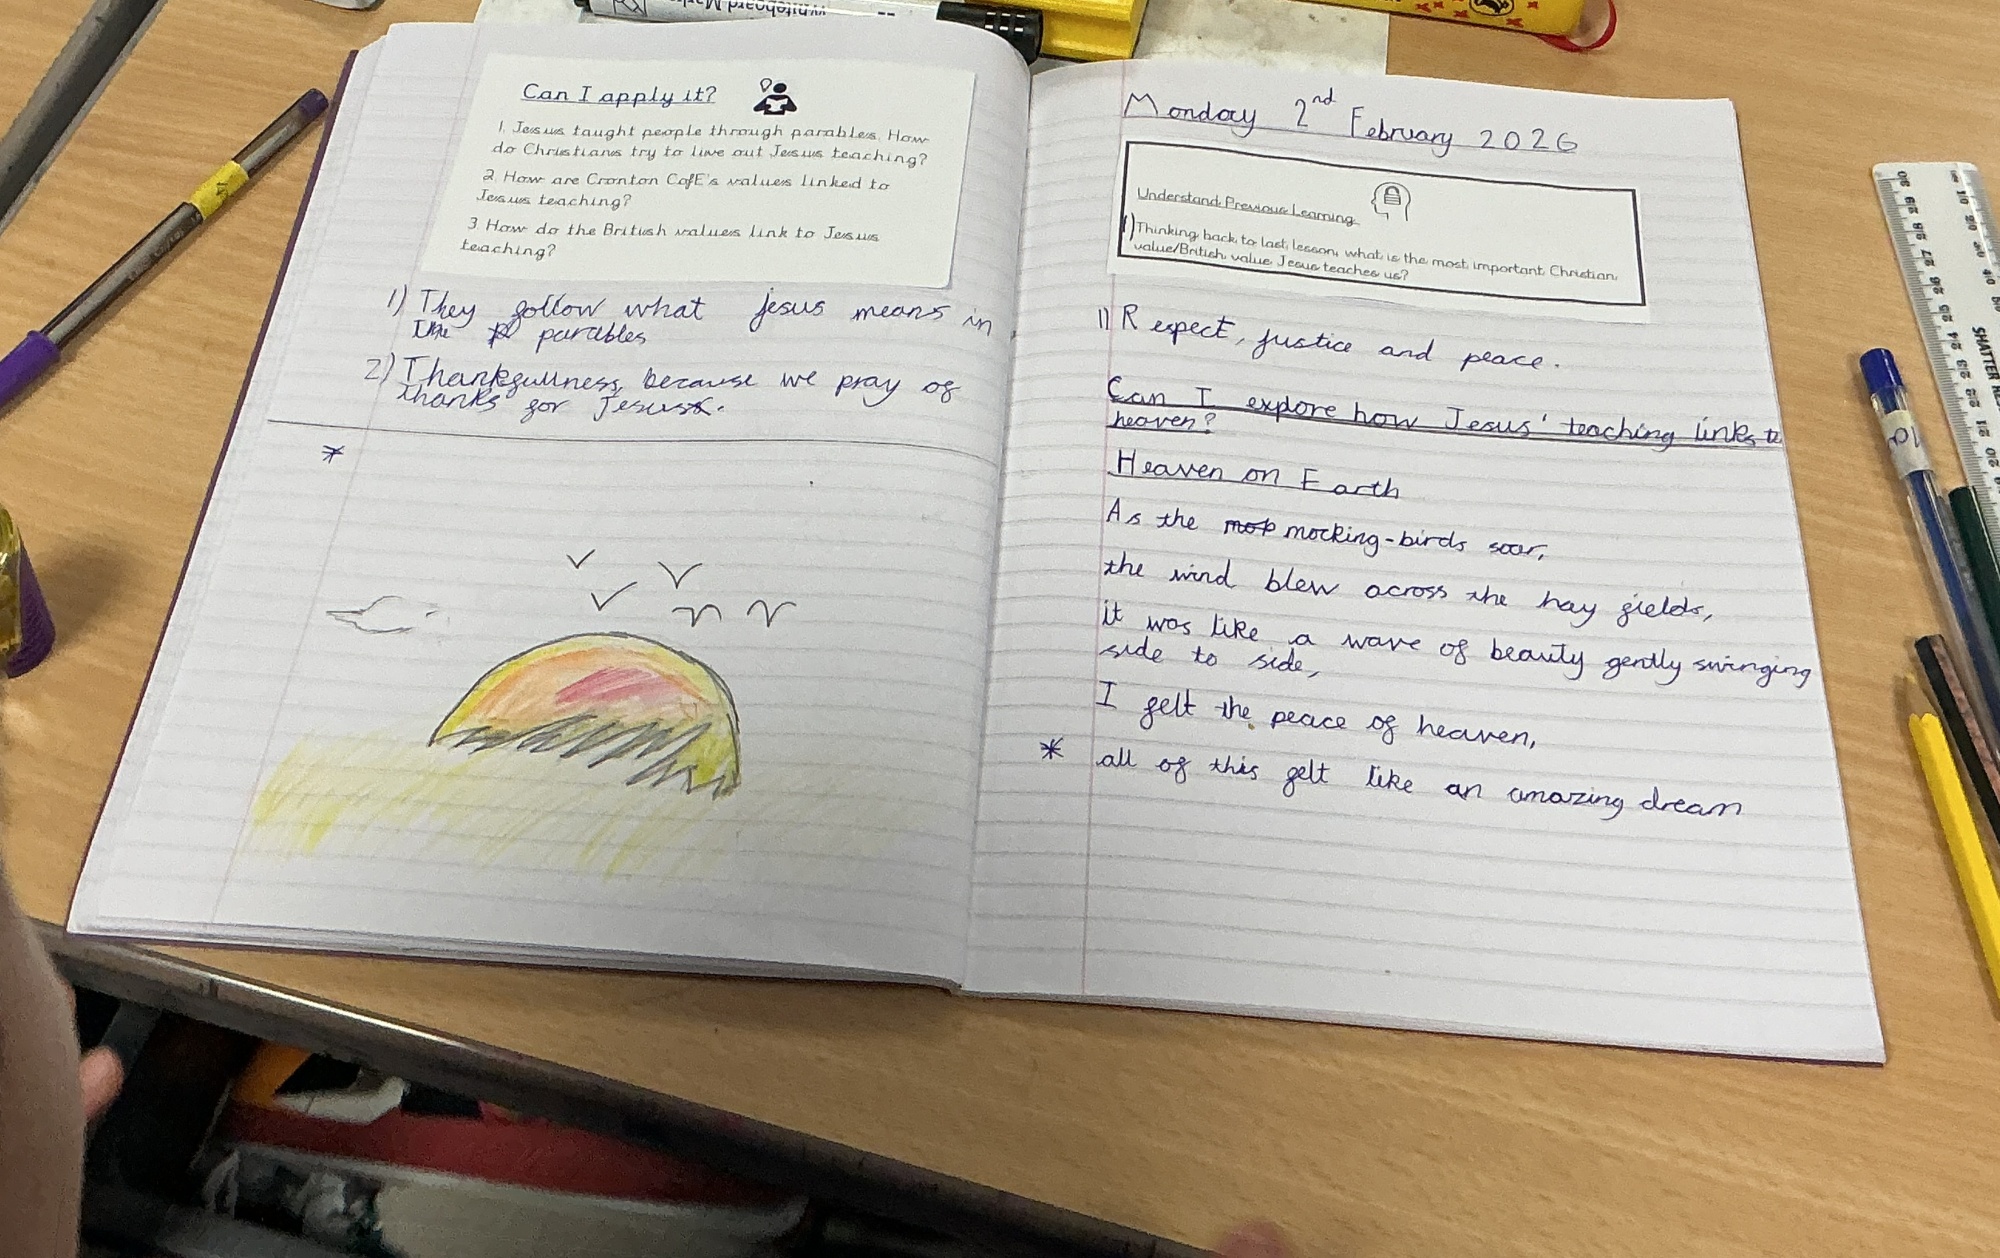 Whiteboard Marker
Can I apply it?
1. Jesus taught people through parables. How
do Christians try to live out Jesus teaching?
2. How are Cronton CofE's values linked to
Jesus teaching?
3. How do the British values link to Jesus
teaching?
1) They follow what jesus means in
the parables
2) Thankfullness, because we pray of
thanks for Jesus.
*
Monday 2nd February 2026
Understand Previous Learning
1) Thinking back to last lesson, what is the most important Christian
value/British value Jesus teaches us?
1) Respect, justice and peace.
Can I explore how Jesus' teaching links to
heaven?
Heaven on Earth
As the mop mocking-birds soar,
the wind blew across the hay fields,
it was like a wave of beauty gently swinging
side to side,
I felt the peace of heaven,
* all of this felt like an amazing dream
30 29 28 27 26 25 24 23 22 21 20 19
SHATTER